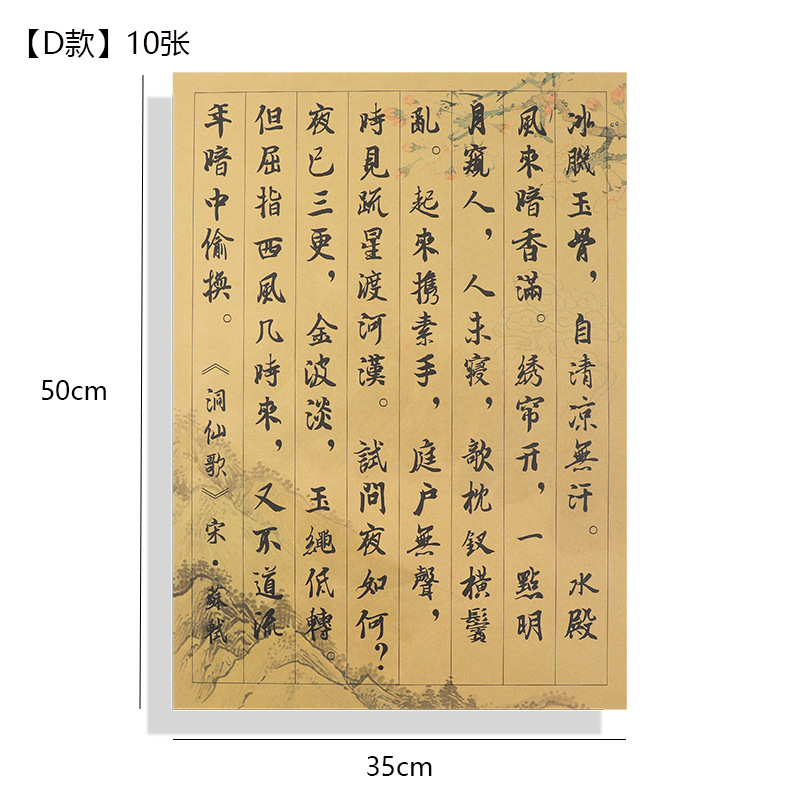 【D款】10张
冰肌玉骨，自清凉無汗。水殿
風來暗香滿。绣帘开，一點明
月窺人，人未寢，歌枕釵橫鬢
亂。起來携素手，庭户無聲，
時見疏星渡河漢。試問夜如何？
夜已三更，金波淡，玉繩低轉。
但屈指西風几時來，又不道流
年暗中偷换。《洞仙歌》宋·蘇軾
50cm
35cm